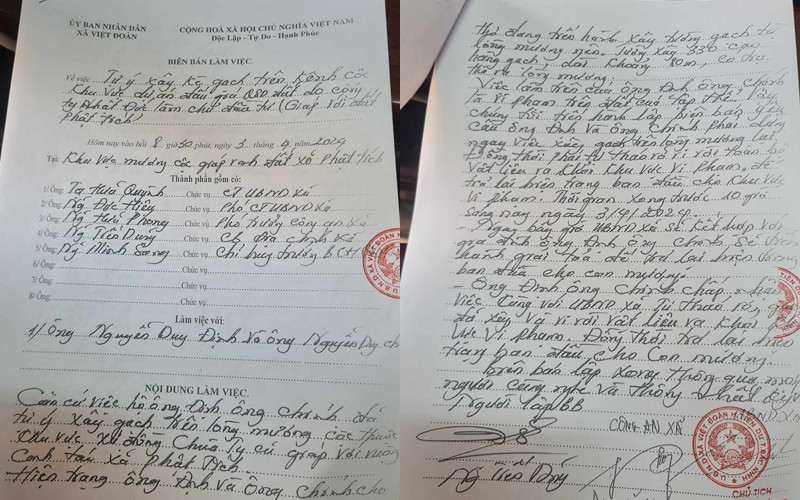 ỦY BAN NHÂN DÂN
XÃ VIỆT ĐOÀN
CỘNG HOÀ XÃ HỘI CHỦ NGHĨA VIỆT NAM
Độc Lập - Tự Do - Hạnh Phúc
BIÊN BẢN LÀM VIỆC.
Về việc Tự ý xây kè gạch trên kênh cốc
Khu vực dự án đấu giá QSD đất do công
ty Nhật Đức làm chủ đầu tư (Giáp với đất
Phật tích)
Hôm nay vào hồi 8 giờ 30 phút, ngày 3 tháng 4 năm 2024
Tại: Khu vực mương cốc giáp ranh đất xã Phật tích
Thành phần gồm có:
1/ Ông: Tạ Hữu Quỳnh Chức vụ: CT UBND xã
2/ Ông: Ng Đức Hiếu Chức vụ: Phó CT UBND xã
3/ Ông: Ng Hữu Phong Chức vụ: Phó trưởng công an xã
4/ Ông: Ng Tiến Dũng Chức vụ: CB Địa chính xã
5/ Ông: Ng Minh Sang Chức vụ: Chỉ huy trưởng BCH
6/ Ông: Chức vụ:
7/ Ông: Chức vụ:
8/ Ông: Chức vụ:
Làm việc với:
1/ Ông Nguyễn Duy Định và ông Nguyễn Duy
NỘI DUNG LÀM VIỆC.
Căn cứ việc hộ ông Định ông Chính đã
tự ý xây gạch trên lòng mương cốc thuộc
Khu vực xứ đồng giáp với
xã Phật Tích.
Hiện trạng ông Định và ông Chính cho
thợ đang tiến hành xây tường gạch từ
lòng mương lên. Tường xây 330 cao
hàng gạch, dài khoảng 10m,
lòng mương;
Việc làm trên của ông Định ông Chính
là vi phạm trên đất của tập thể. Vậy
chúng tôi tiến hành lập biên bản yêu
cầu ông Định và ông Chính phải dừng
ngay việc xây gạch trên lòng mương lại
Đồng thời phải tự tháo rỡ di rời toàn bộ
vật liệu ra khỏi khu vực vi phạm, để
trả lại hiện trạng ban đầu cho khu vực
vi phạm. Thời gian xong trước 10 giờ
sáng nay ngày 3/4/2024.
- Ngay bây giờ UBND xã sẽ kết hợp với
gia đình ông Định ông Chính. Sẽ tiến
hành giải toả để trả lại hiện trạng
ban đầu cho con mương.
- Ông Định ông Chính chấp nhận
việc cùng với UBND xã tự tháo rỡ
đã xây và di rời vật liệu ra khỏi khu
vực vi phạm. Đồng thời trả lại hiện
trạng ban đầu cho con mương.
Biên bản lập xong thông qua mọi
người cùng nghe và thống nhất
Người lập BB
CÔNG AN XÃ
UBND XÃ
Ng Tiến Dũng
CHỦ TỊCH
U.B.N.D XÃ VIỆT ĐOÀN H.TIÊN DU T.BẮC NINH